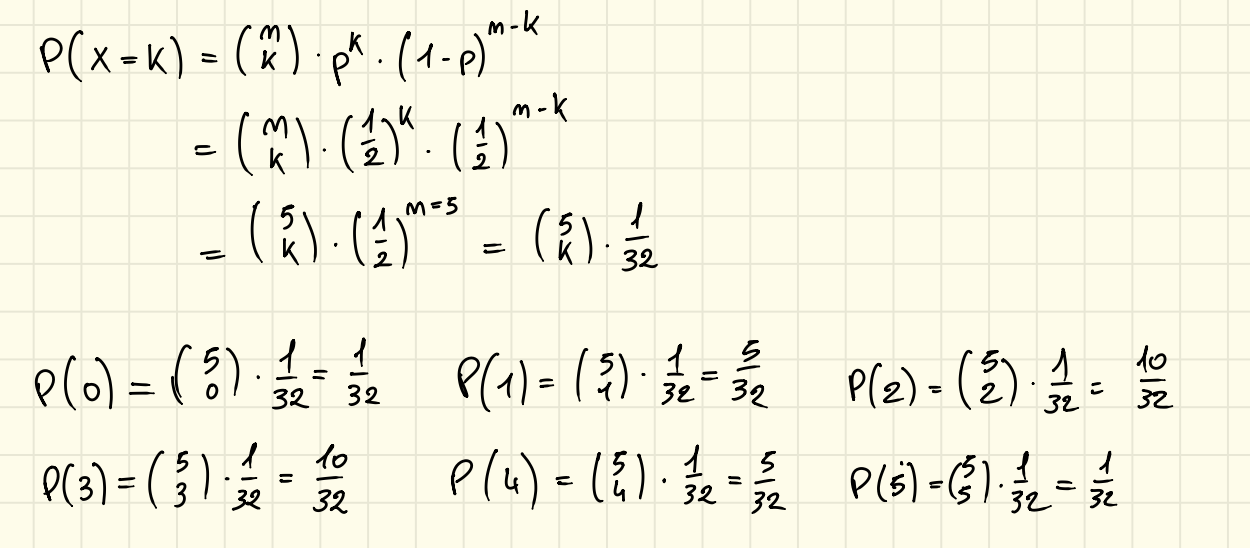 P(X=K) = \binom{n}{k} · p^k · (1-p)^{n-k}
= \binom{n}{k} · (\frac{1}{2})^k · (\frac{1}{2})^{n-k}
= \binom{5}{k} · (\frac{1}{2})^{n=5} = \binom{5}{k} · \frac{1}{32}
P(0) = \binom{5}{0} · \frac{1}{32} = \frac{1}{32} P(1) = \binom{5}{1} · \frac{1}{32} = \frac{5}{32} P(2) = \binom{5}{2} · \frac{1}{32} = \frac{10}{32}
P(3) = \binom{5}{3} · \frac{1}{32} = \frac{10}{32} P(4) = \binom{5}{4} · \frac{1}{32} = \frac{5}{32} P(5) = \binom{5}{5} · \frac{1}{32} = \frac{1}{32}